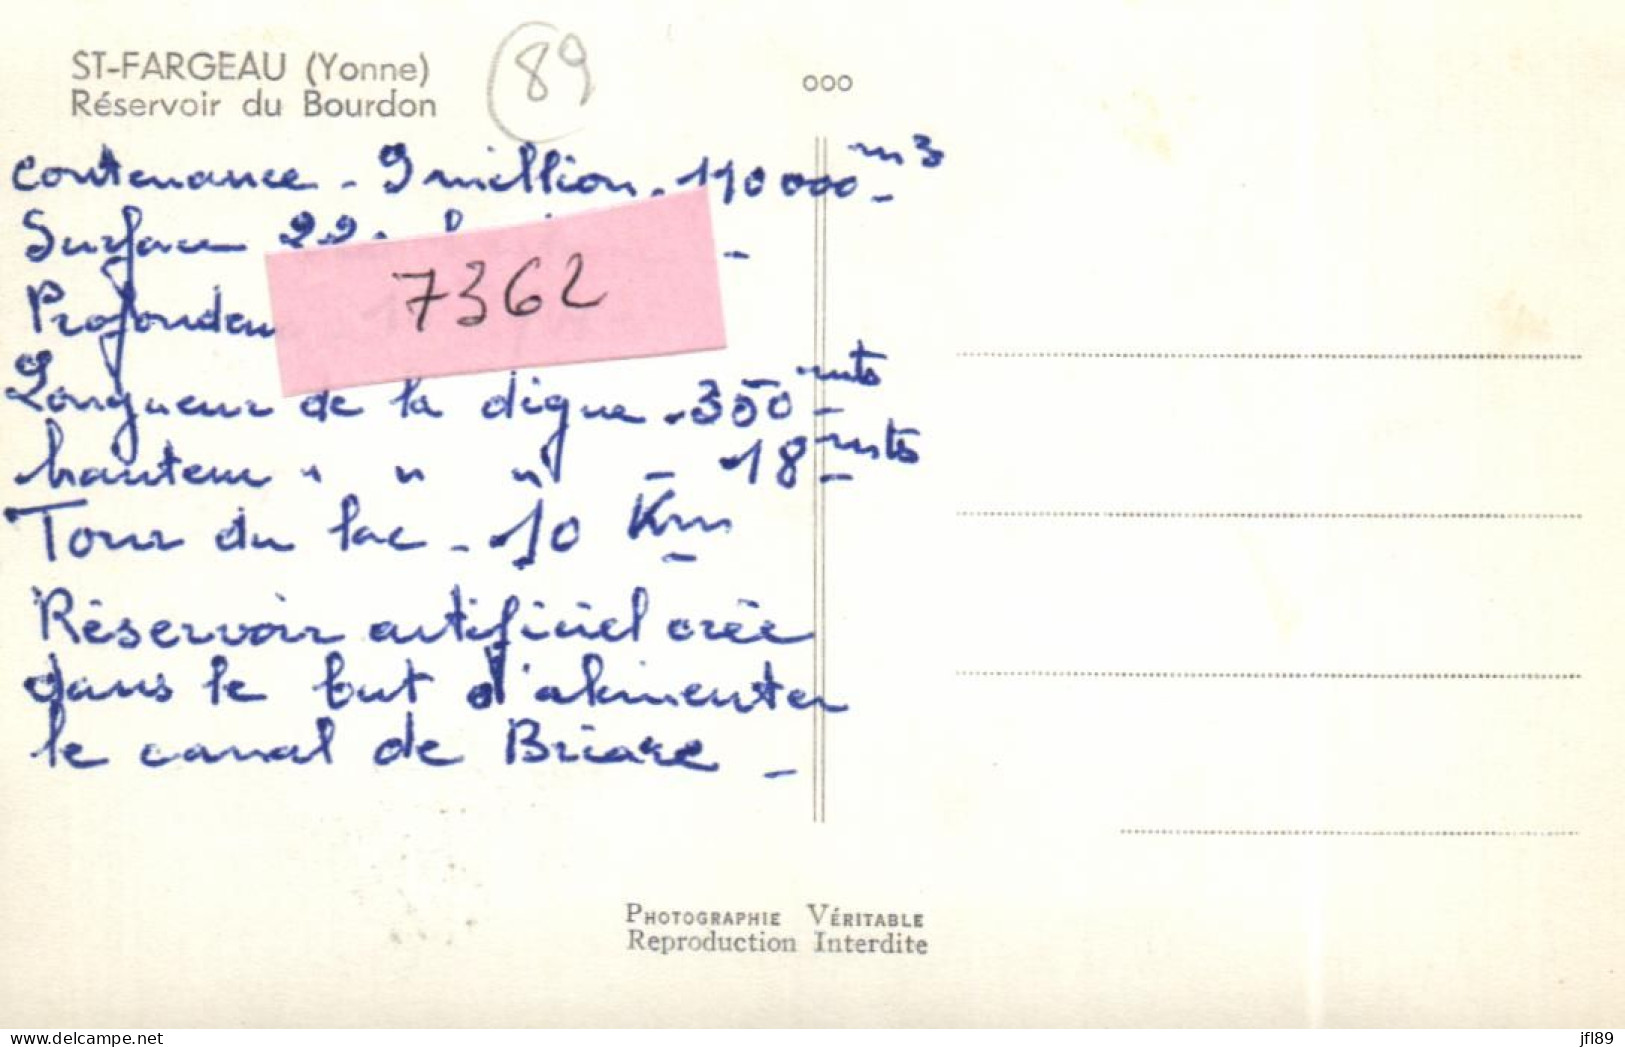 ST-FARGEAU (Yonne)
Réservoir du Bourdon
89
ooo
contenance - 9 million - 110 000 m3 -
Surface 22 -
Profondeu
7362
Longueur de la digue - 350 mts -
hauteur " " " - 18 mts -
Tour du lac - 10 Km -
Réservoir artificiel crée
dans le but d'alimenter
le canal de Briare -
PHOTOGRAPHIE VÉRITABLE
Reproduction Interdite
delcampe.net
jfl89